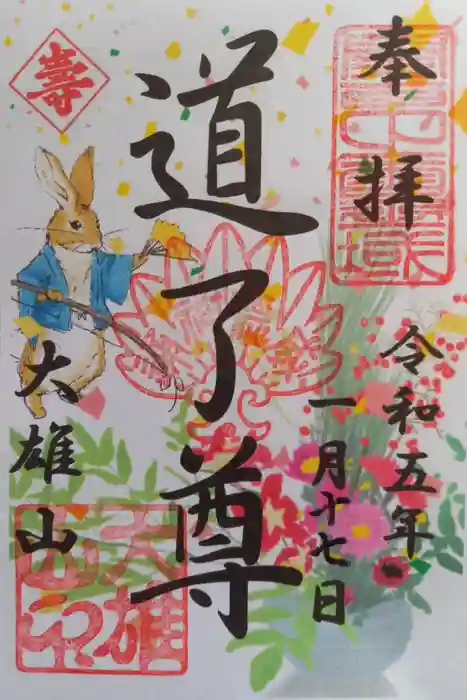 奉拝
令和五年
一月十七日
道了尊
壽
大雄山
大雄
山印